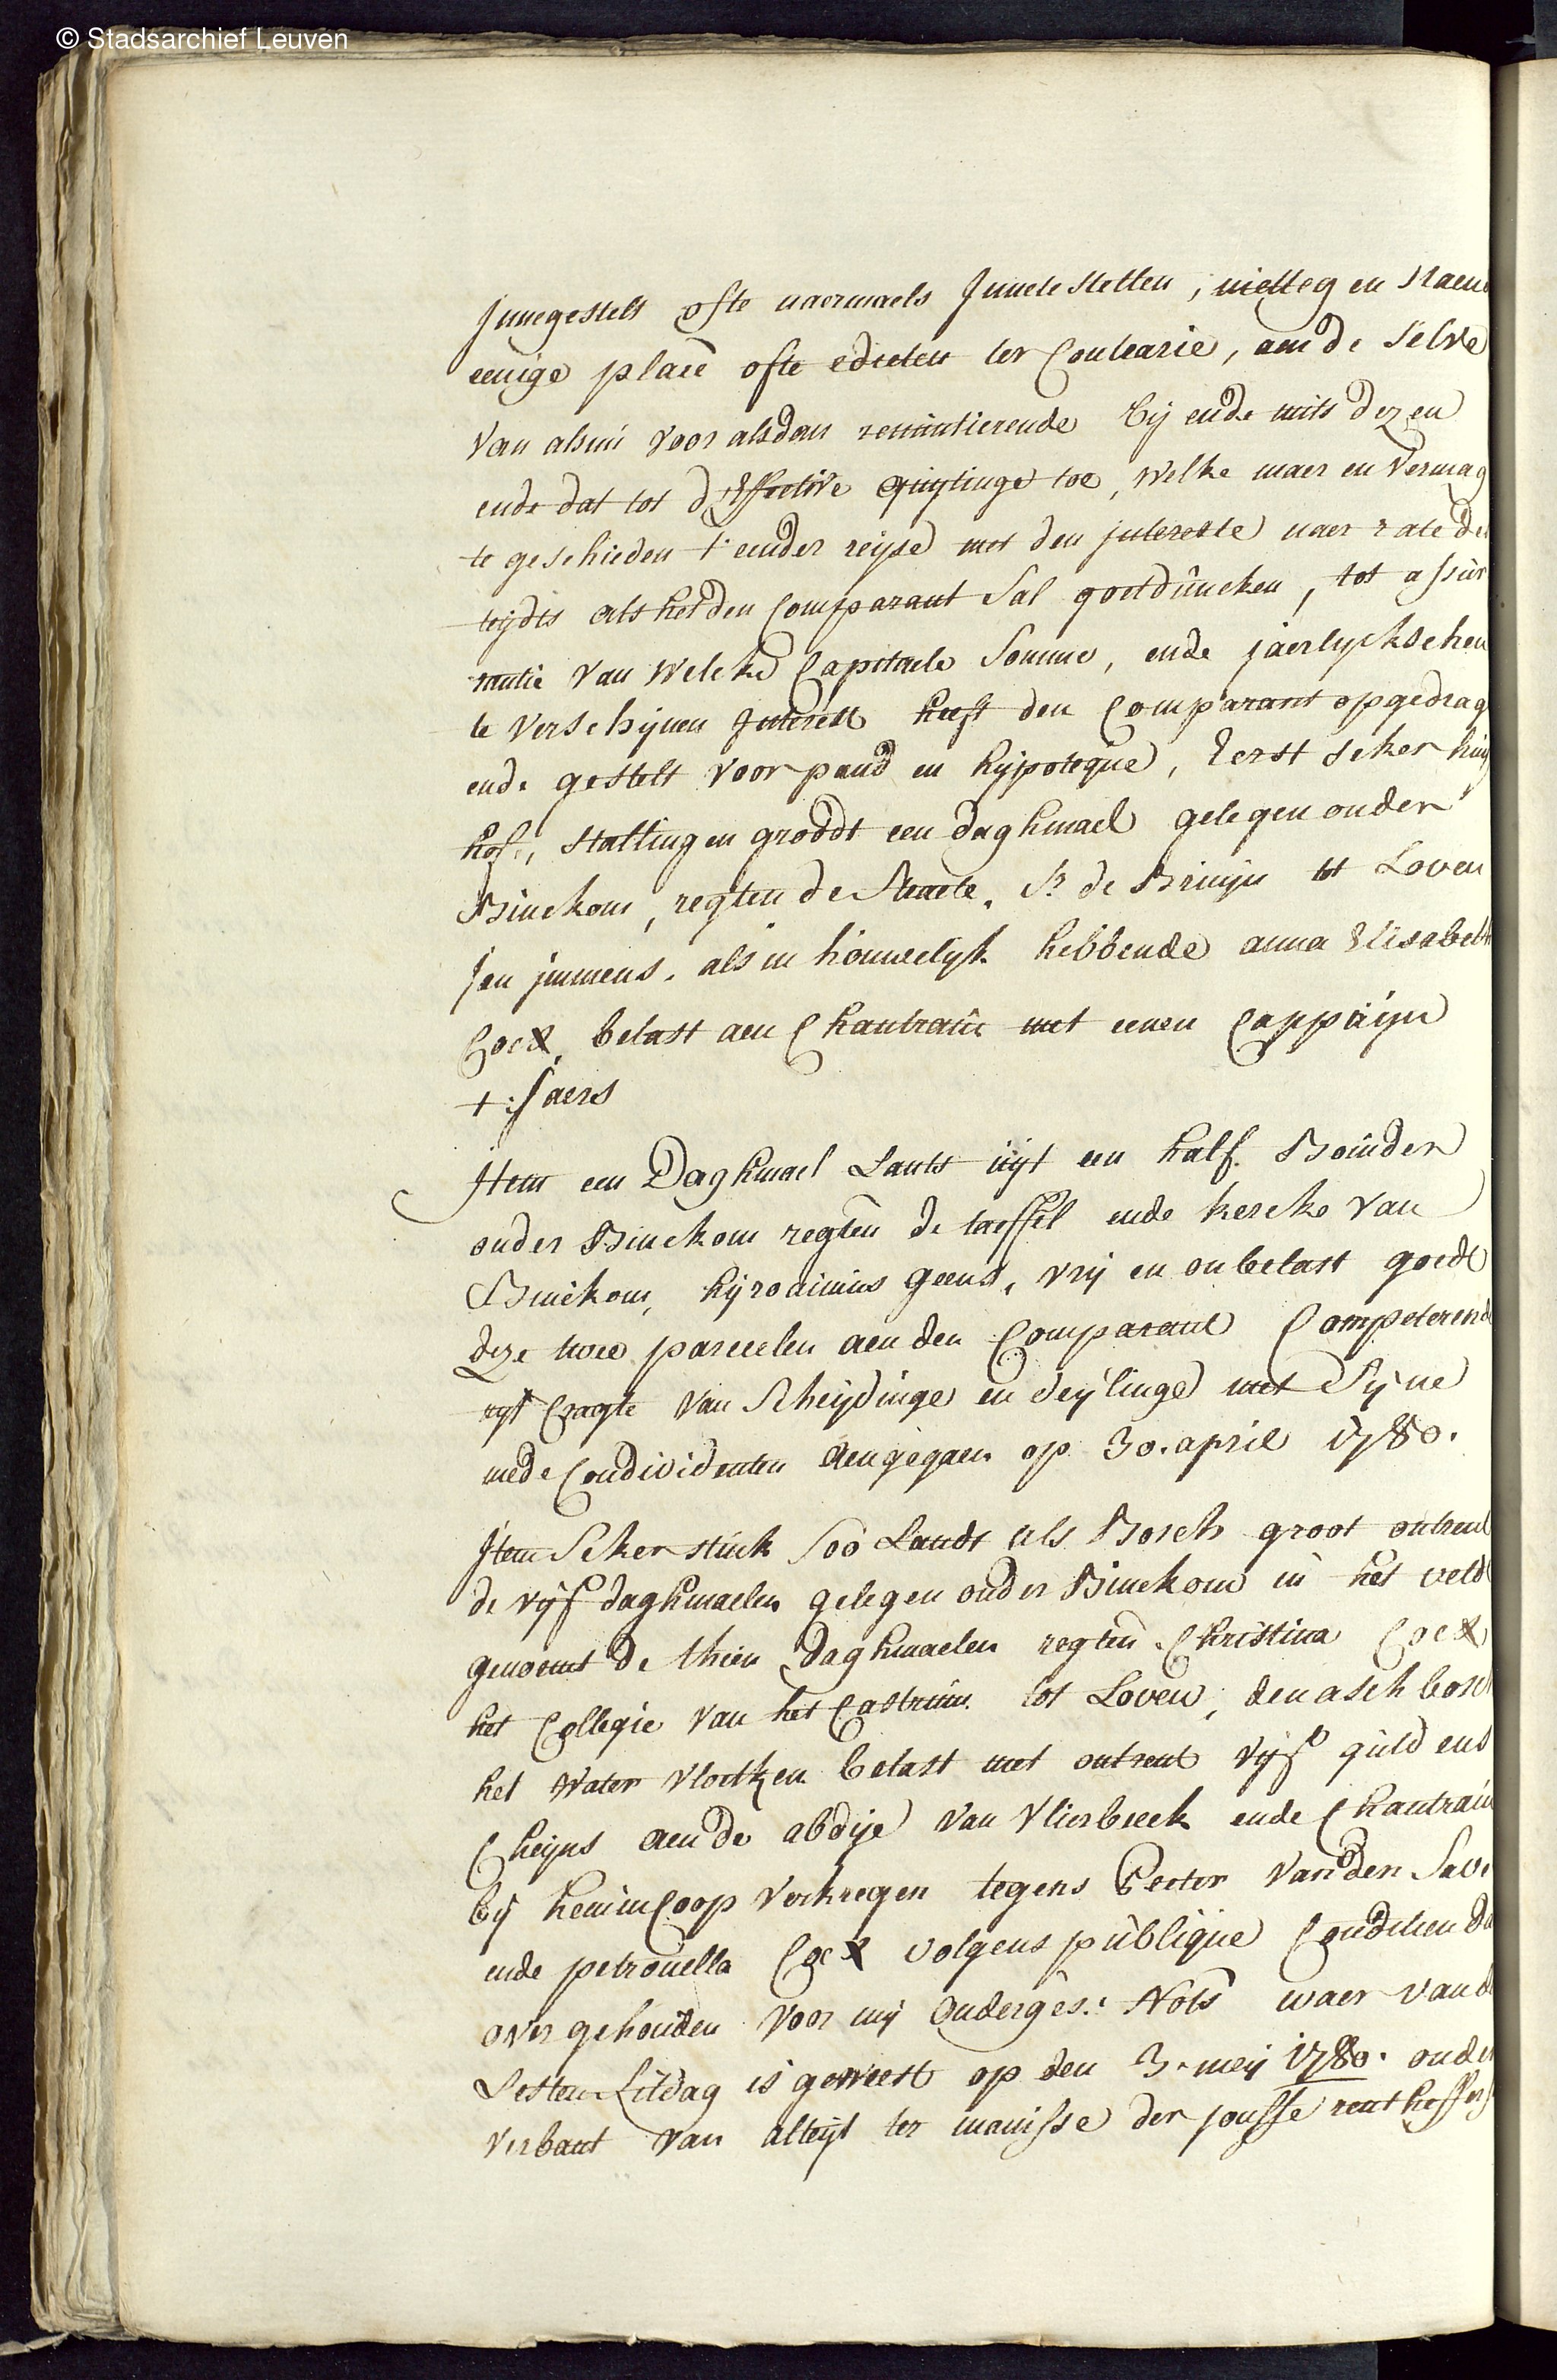 © Stadsarchief Leuven
Innegestelt ofte naermaels Innetestellen, niettegenstaen
eenige place ofte edicten ter Contrarie, aen de selve
van als nu voor alsdan renuntierende bij ende mits dezen
ende dat tot d'Effective quytinge toe, welke maer en vermag
te geschieden t'eender reijse met den intereste naer rate des
tijdts als het den Comparant sal goetduncken, tot assue
rantie van welcke Capitaele somme, ende jaerlyckschen
te verschijnen Interest heeft den Comparant opgedrag
ende gestelt voor pand en hijpoteque, Eerst seker huys
hof, stallingen groodt een daghmael gelegen onder
Binckom, regten de straete, Sr. de Bruijn tot Loven
Jan jmmens, als in houwelyk hebbende anna Elisabeth
Cocx, belast aen Chantrain met eenen Cappuijn
t: saers
Item een Daghmael Lants uijt een half Boinder
onder Binckom regten de taeffel ende kercke van
Binckom, hijronimus geens, vrij en onbelast goedt
deze twee parceelen aen den Comparant Competerende
uyt cragte van Scheijdinge en deijlinge met Sijne
mede Condividenten aengegaen op 30. april 1780.
Item Seker stuck soo Landt als Bosch groot ontrent
de vijf daghmaelen gelegen onder Binckom in het veldt
genoemt de thien daghmaelen regten Christina Cocx
het Collegie van het Castrum tot Loven, den asch bosch
het water vloetken belast met ontrent vijf guldens
Cheijns aen de abdije van Vlierbeeck ende Chantrain
bij hem in Coop verkregen tegens Peeter van den Save
ende petronella Cocx volgens publique Conditien da
over gehouden voor mij onderges: Nots waer van d
Lesten Sitdag is geweest op den 3. meij 1780. onder
verbant van altijt ter manisse der jousse rent heffers